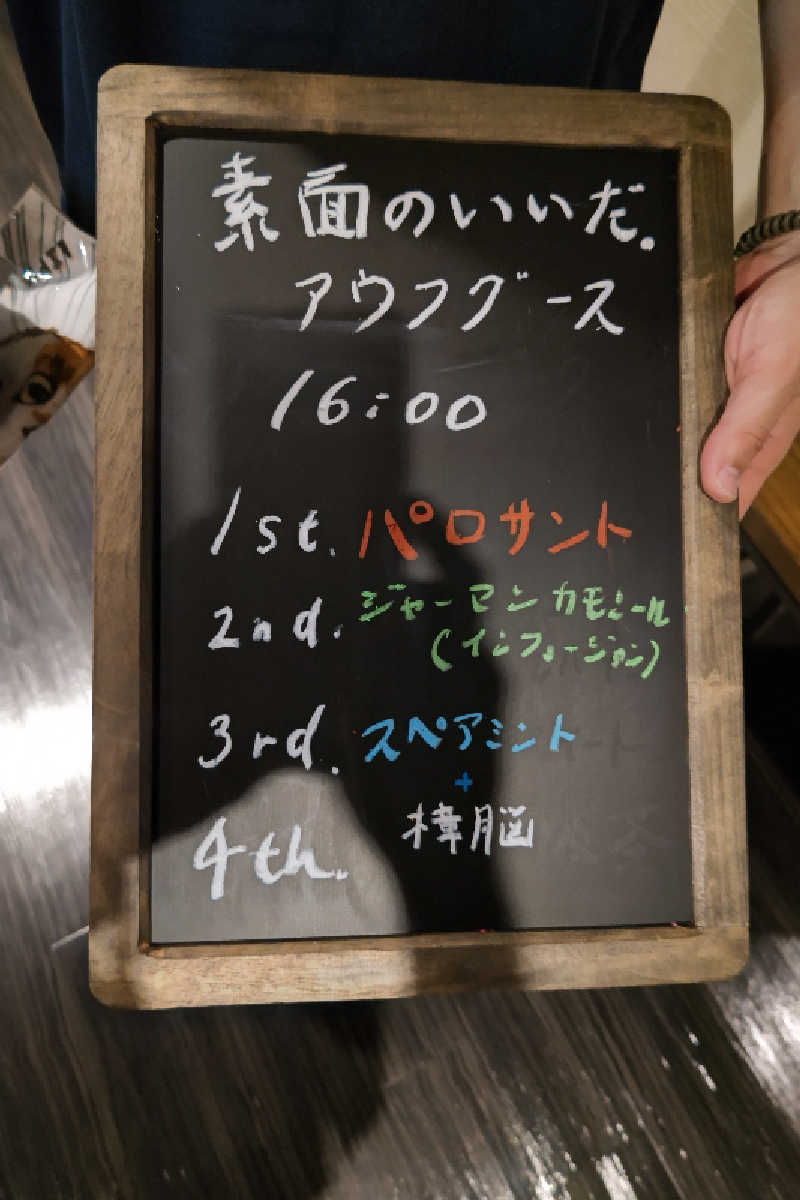 素面のいいだ.
アウフグース
16:00
1st. パロサント
2nd. ジャーマンカモミール
(インフュージョン)
3rd. スペアミント
+
樟脳
4th.